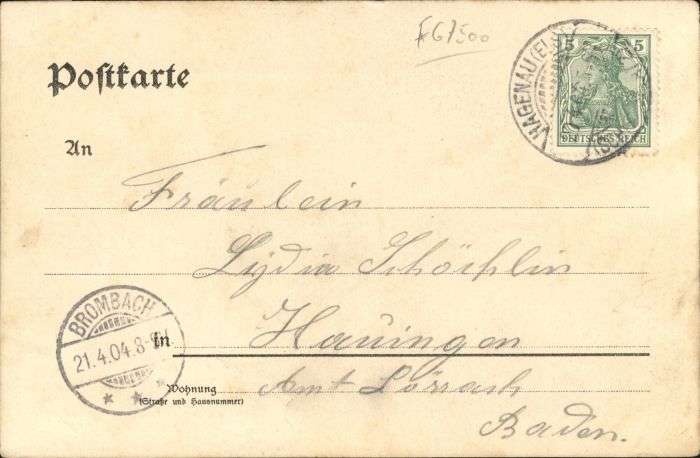 Postkarte
5 5
DEUTSCHES REICH
HAGENAU (ELS.)
An
Fräulein
Lydia Schöchlin
BROMBACH
21.4.04.8-9V
in Hauingen
Wohnung
(Straße und Hausnummer)
Amt Lörrach
Baden.